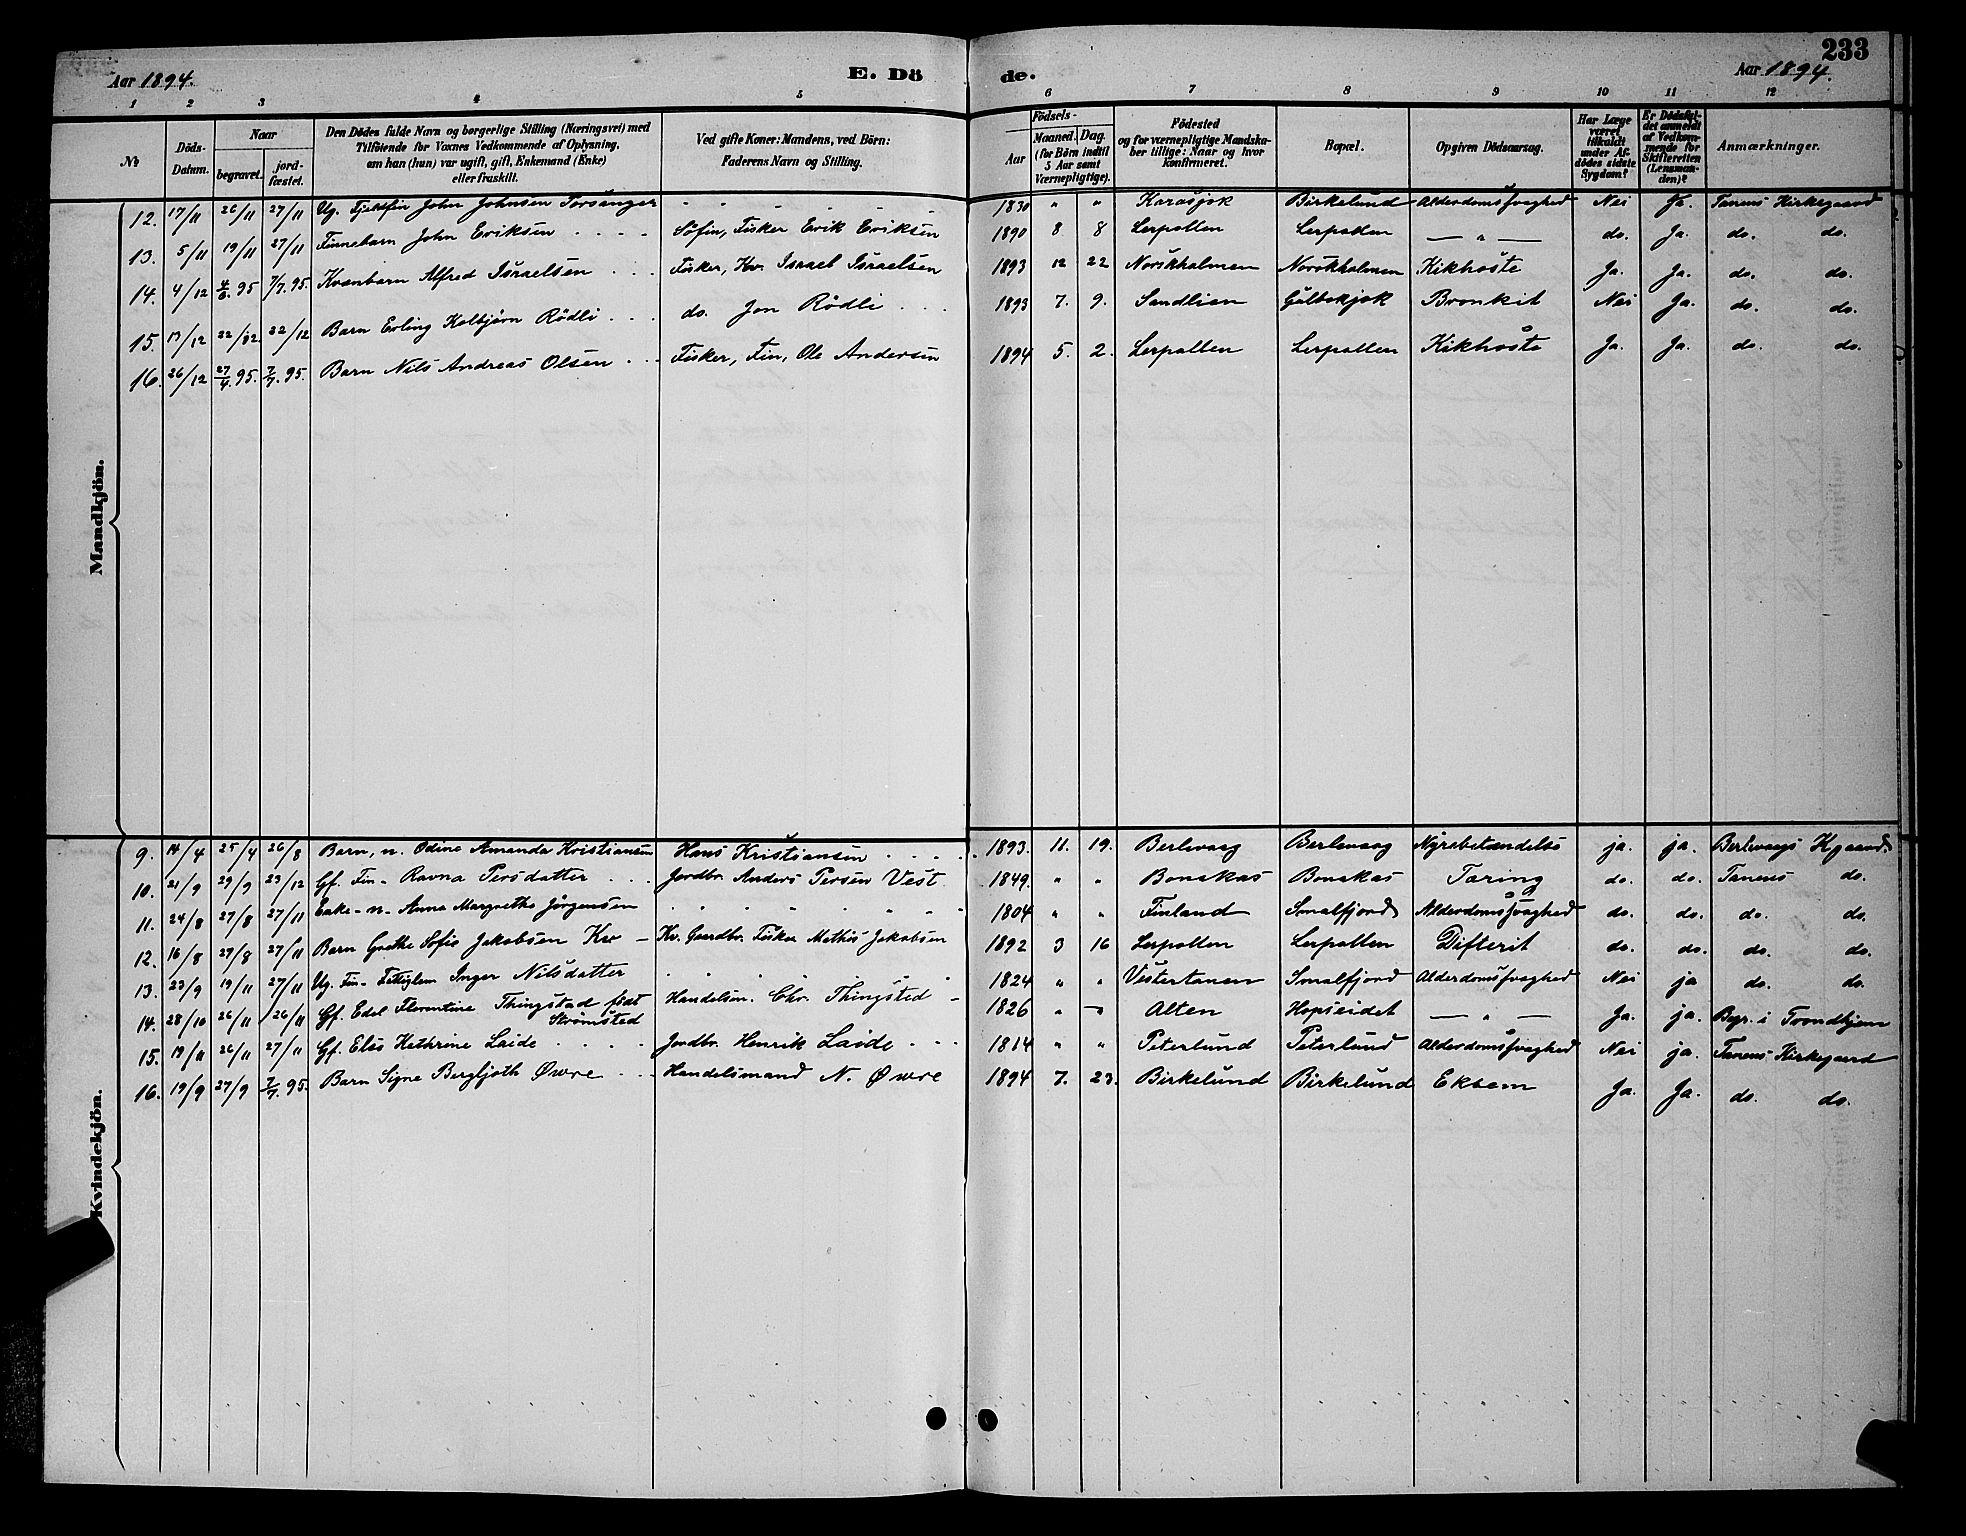 233
Aar 1894. E. Dö de. Aar 1894.
1 2 3 4 5 6 7 8 9 10 11 12
No
Döds-Datum.
Naar
begravet.
jord-fæstet.
Den Dödes fulde Navn og borgerlige Stilling (Næringsvei) med
Tilföiende for Voxnes Vedkommende af Oplysning,
om han (hun) var ugift, gift, Enkemand (Enke)
eller fraskilt.
Ved gifte Koner: Mandens, ved Börn:
Faderens Navn og Stilling.
Födsels-
Aar
Maaned. Dag.
(for Børn indtil
5 Aar samt
Værnepligtige).
Födested
og for værnepligtige Mandska-
ber tillige: Naar og hvor
konfirmeret.
Bopæl.
Opgiven Dödsaarsag.
Har Læge
været
tilkaldt
under Af-
dödes sidste
Sygdom?
Er Dödsfal-
det anmeldt
af Vedkom-
mende for
Skifteretten
(Lensman-
den)?
Anmærkninger.
Mandkjön.
12. 17/11 26/11 27/11 Ug. Fjeldfin John Johnsen Porsanger 1830 " " Karasjok Birkelund Alderdomssvaghed Nei Ja. Tanens Kirkegaard
13. 5/11 19/11 27/11 Finnebarn John Eriksen Söfin, Fisker Erik Eriksen 1890 8 8 Lerpollen Lerpollen — " — do. Ja. do. do.
14. 4/12 4/6 95 7/7. 95. Kvænbarn Alfred Israelsen Fisker, Kv. Israel Israelsen 1893 12 22 Norskholmen Norskholmen Kikhoste Ja. Ja. do. do.
15. 13/12 22/12. 22/12 Barn Erling Kolbjörn Rödli do. Jon Rödli 1893 7. 9. Sandlien Golbokjok Bronkit Nei Ja. do. do.
16. 26/12 27/4. 95. 7/7. 95. Barn Nils Andreas Olsen Fisker, Fin, Ole Andersen 1894 5. 2. Lerpollen Lerpollen Kikhoste Ja. Ja. do. do.
Kvindekjön.
9. 14/4 25/4 26/8 Barn, n. Odine Amanda Kristiansen Hans Kristiansen 1893. 11. 19. Berlevaag Berlevaag Nyrebetændelse ja. ja. Berlevaags Kgaard.
10. 21/9 29/9 23/12 Gf. Fin- Ravna Persdatter Jordbr. Anders Persen Vest. 1849. " " Bonakas Bonakas Tæring do. do. Tanens do.
11. 24/8 27/8 27/11 Enke -n- Anna Margrethe Jørgensen 1804 " " Finland Smalfjord Alderdomssvaghed do. do. do. do.
12. 16/8 27/8 27/11 Barn Grethe Sofie Jakobsen Kv — Kv. Gaardbr. Fisker Mathis Jakobsen 1892 3 16 Lerpollen Lerpollen Difterit do. do. do. do.
13. 23/9 19/11 27/11 Ug. Fin- Fattiglem Inger Nilsdatter 1824 " " Vestertanen Smalfjord Alderdomssvaghed Nei ja do. do.
14. 28/10 26/11 26/11 Gf. Edel Florentine Thingstad født
Strømsted Handelsm. Chr. Thingsted — 1826 " " Alten Hopseidet — " — Ja. ja. Begr. i Trondhjem
15. 19/11 26/11 27/11 Gf. Else Kathrine Laide Jordbr. Henrik Laide 1814 " " Peterlund Peterlund Alderdomssvaghed Nei ja. Tanens Kirkegaard
16. 19/9 27/9 7/7. 95. Barn Signe Bergljoth Øvre Handelsmand N. Øvre 1894 7. 23. Birkelund Birkelund Eksem Ja. Ja. do. do.